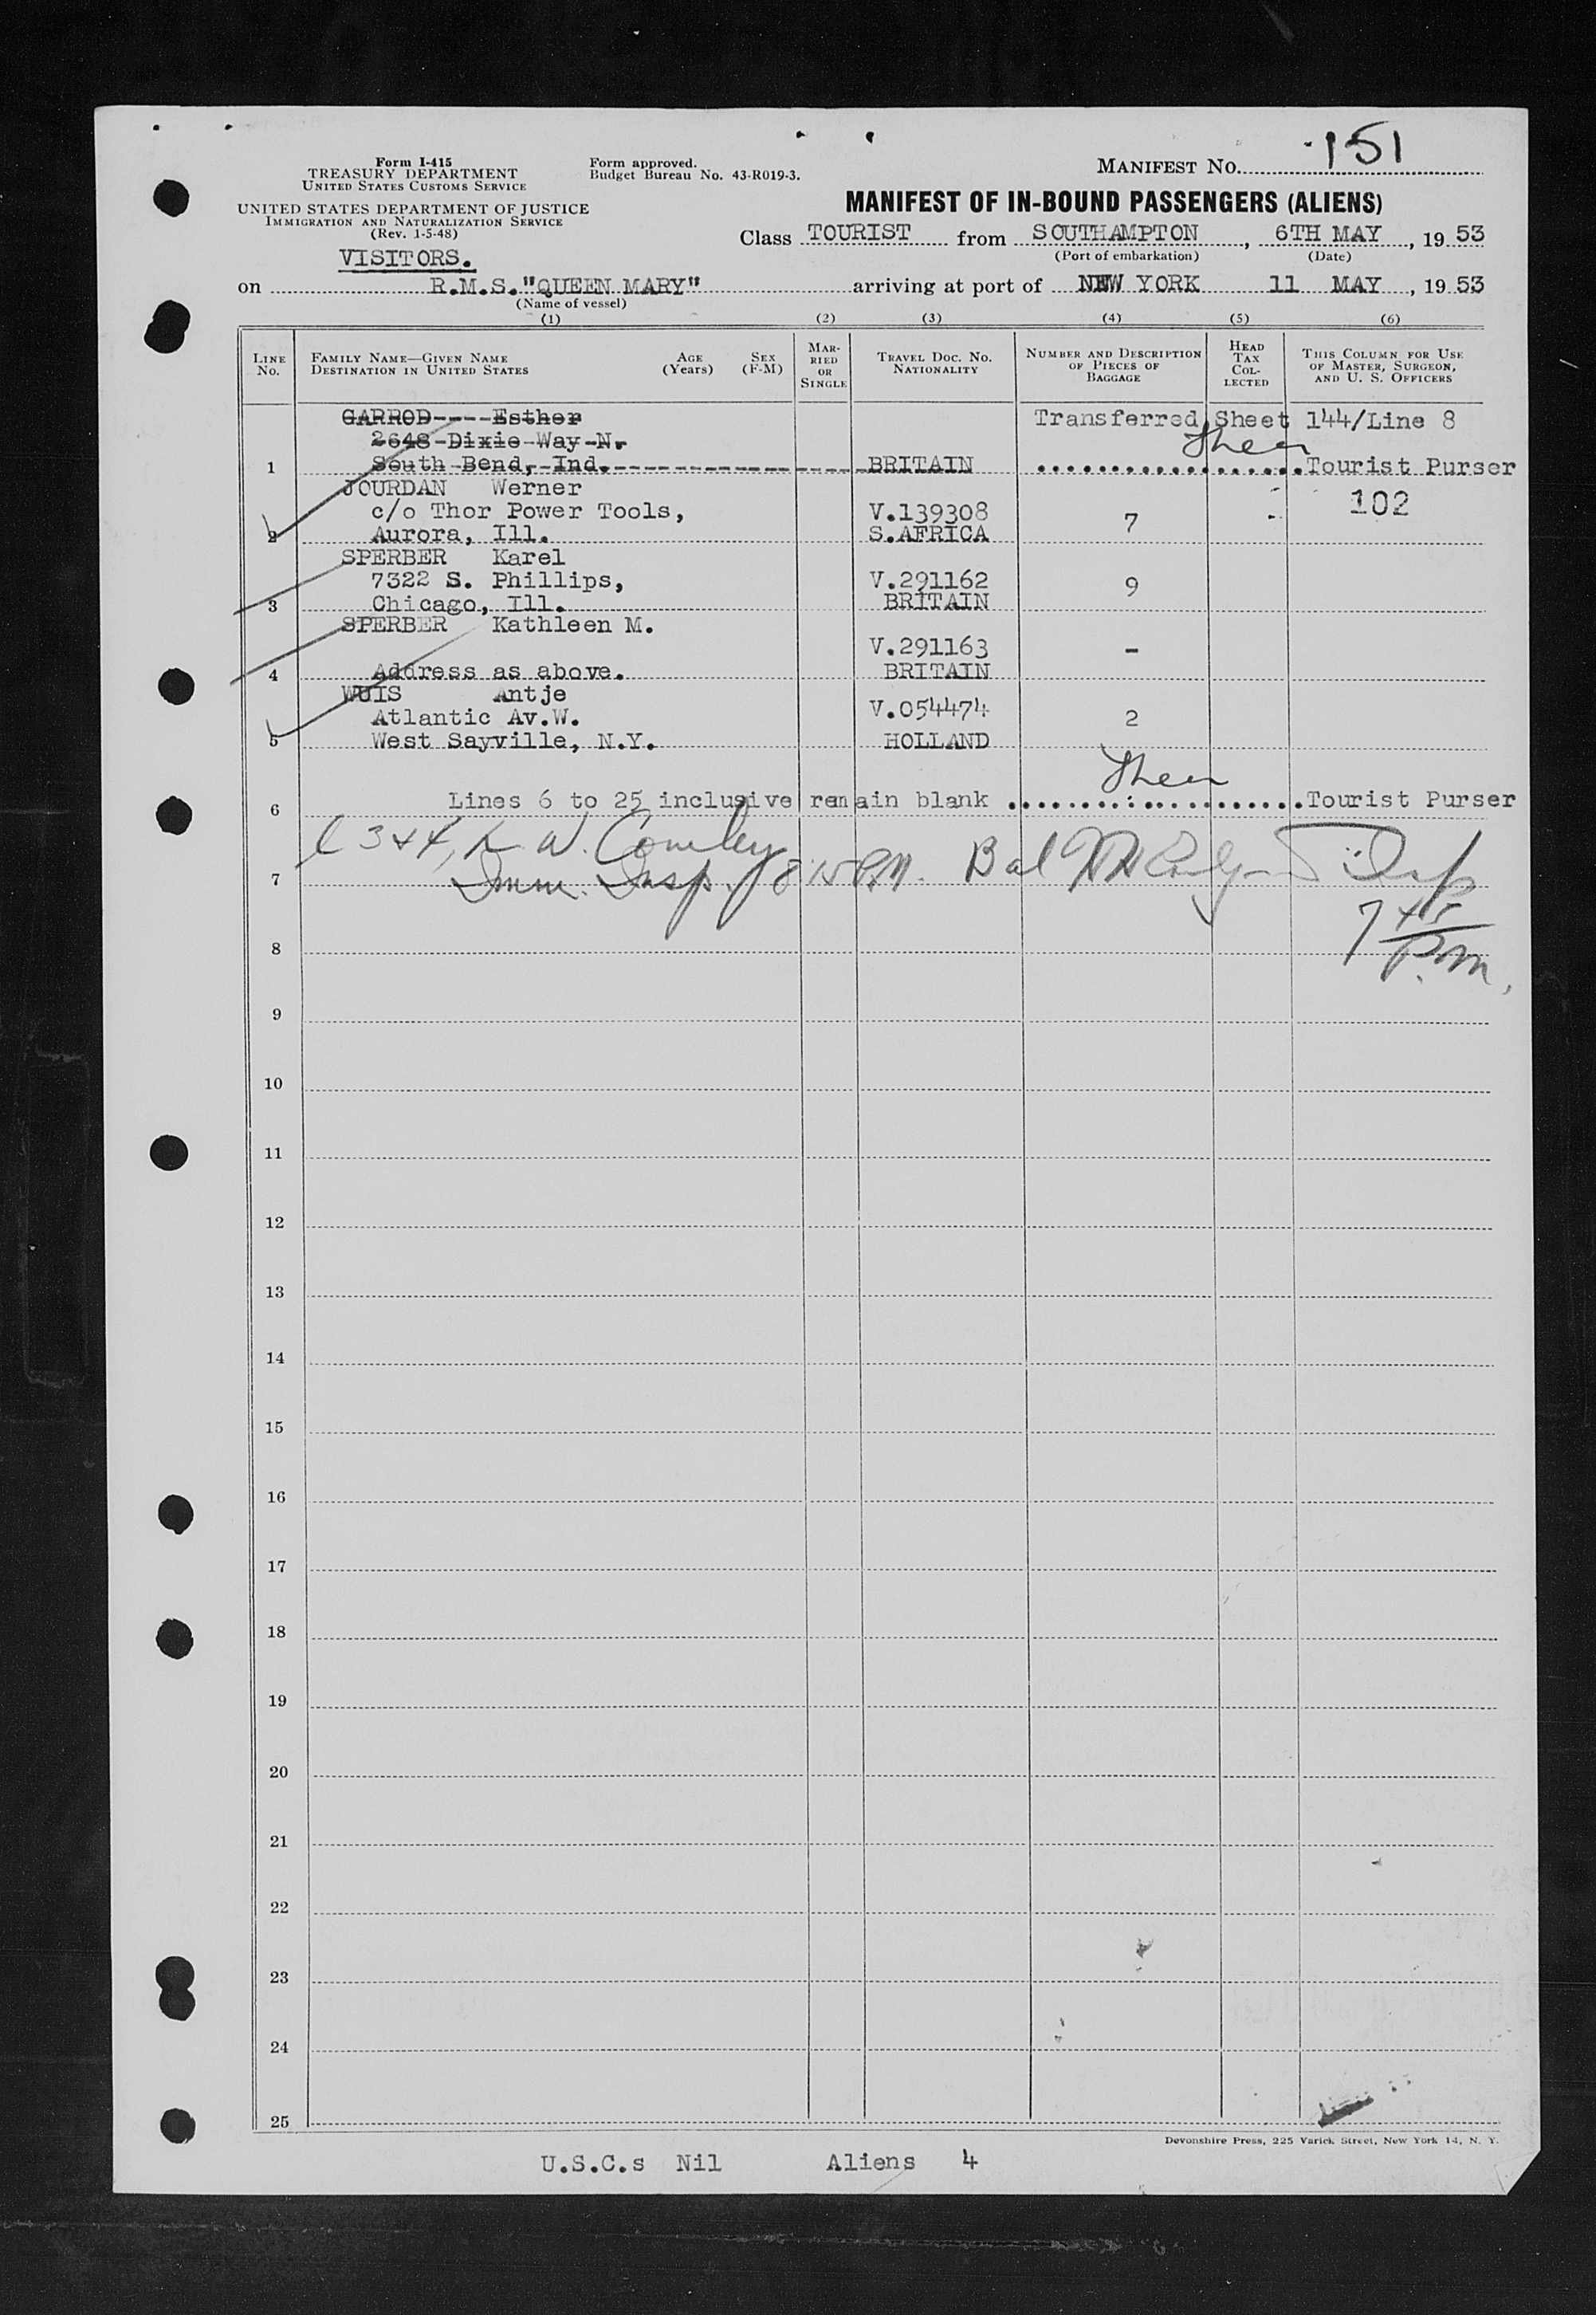 Form I-415
TREASURY DEPARTMENT
UNITED STATES CUSTOMS SERVICE
UNITED STATES DEPARTMENT OF JUSTICE
IMMIGRATION AND NATURALIZATION SERVICE
(Rev. 1-5-48)
VISITORS.
Form approved.
Budget Bureau No. 43-R019-3.
MANIFEST No. 151
MANIFEST OF IN-BOUND PASSENGERS (ALIENS)
Class TOURIST from SOUTHAMPTON, 6TH MAY, 19 53
(Port of embarkation) (Date)
on R.M.S."QUEEN MARY" arriving at port of NEW YORK 11 MAY, 19 53
(Name of vessel)
(1) (2) (3) (4) (5) (6)
LINE No.
FAMILY NAME—GIVEN NAME
DESTINATION IN UNITED STATES
AGE (Years)
SEX (F-M)
MARRIED OR SINGLE
TRAVEL DOC. NO.
NATIONALITY
NUMBER AND DESCRIPTION OF PIECES OF BAGGAGE
HEAD TAX COLLECTED
THIS COLUMN FOR USE OF MASTER, SURGEON, AND U. S. OFFICERS
GARROD----Esther Transferred Sheet 144/Line 8
2648-Dixie-Way-N.
1 South-Bend,-Ind. BRITAIN Tourist Purser
JOURDAN Werner 102
c/o Thor Power Tools, V.139308 7 -
2 Aurora, Ill. S.AFRICA
SPERBER Karel
7322 S. Phillips, V.291162 9
3 Chicago, Ill. BRITAIN
SPERBER Kathleen M.
V.291163 -
4 Address as above. BRITAIN
WUIS Antje
Atlantic Av.W. V.054474 2
5 West Sayville, N.Y. HOLLAND
6 Lines 6 to 25 inclusive remain blank Tourist Purser
W. Cowley
7 Imm. Insp. 8:15 P.M. Bal
7 45
P.m.
8
9
10
11
12
13
14
15
16
17
18
19
20
21
22
23
24
25
Devonshire Press, 225 Varick Street, New York 14, N. Y.
U.S.C.s Nil Aliens 4